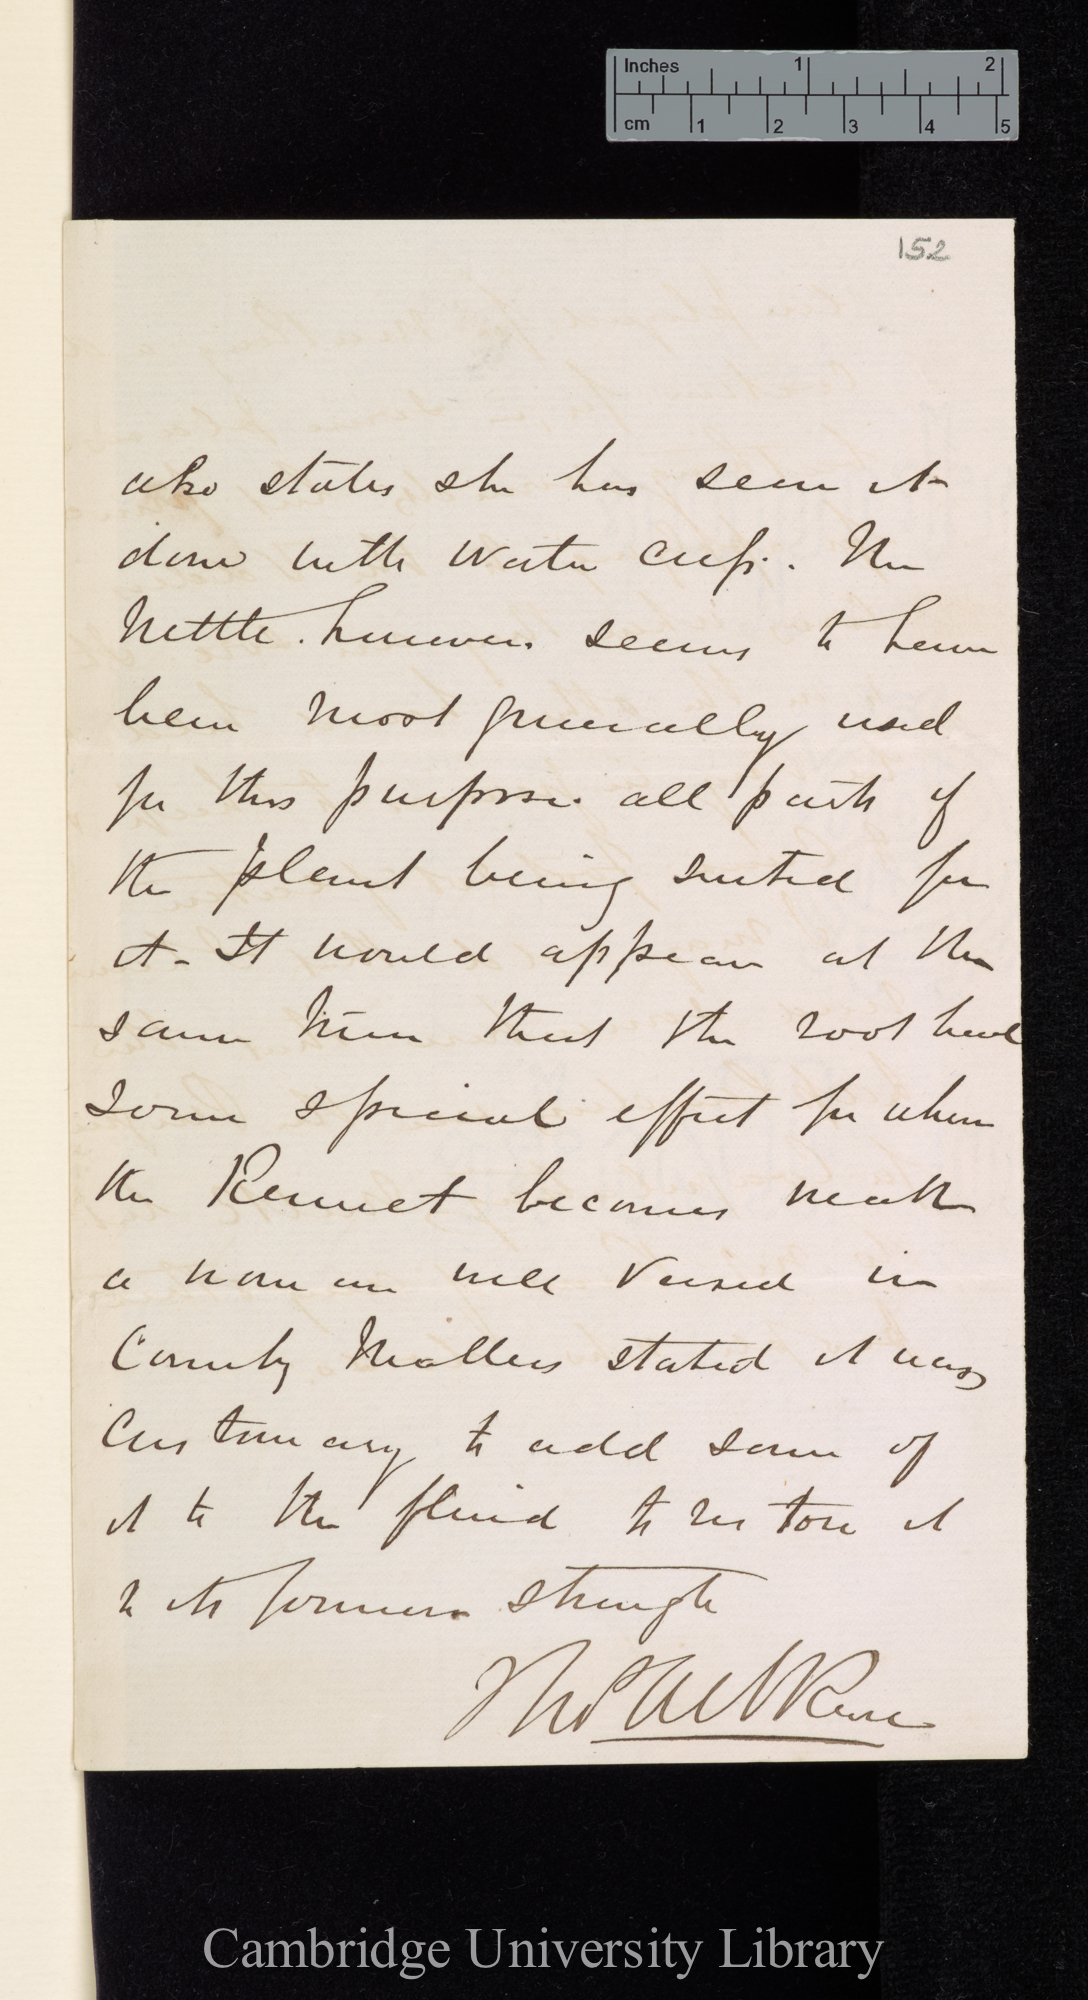 Inches 1 2
cm 1 2 3 4 5
152
also states she has seen it
done with Water cup. The
Nettle. however. seems to have
been most generally used
for this purpose. all parts of
the plant being suited for
it - It would appear at the
same time that the root had
some special effect for when
the Rennet becomes weak
a woman well versed in
County Matters stated it was
Customary to add some of
it to the fluid to restore it
to its former strength
Thos
Cambridge University Library